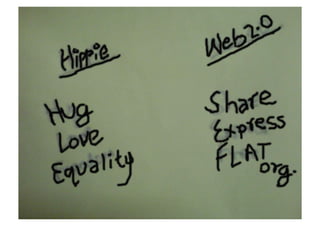 Hippie
Hug
Love
Equality
Web2.0
Share
Express
FLAT
org.